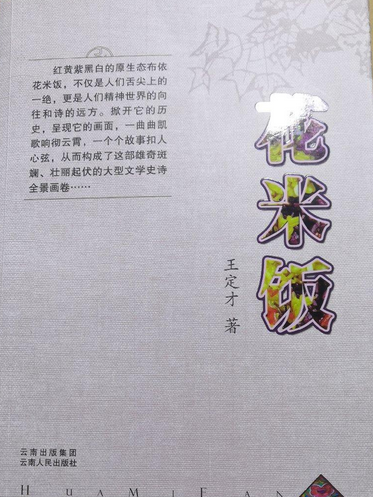 红黄紫黑白的原生态布依
花米饭，不仅是人们舌尖上的
一绝，更是人们精神世界的向
往和诗的远方。掀开它的历
史，呈现它的画面，一曲曲凯
歌响彻云霄，一个个故事扣人
心弦，从而构成了这部雄奇斑
斓、壮丽起伏的大型文学史诗
全景画卷……
花米饭
王定才 著
云南出版集团
云南人民出版社
HUAMIFAN